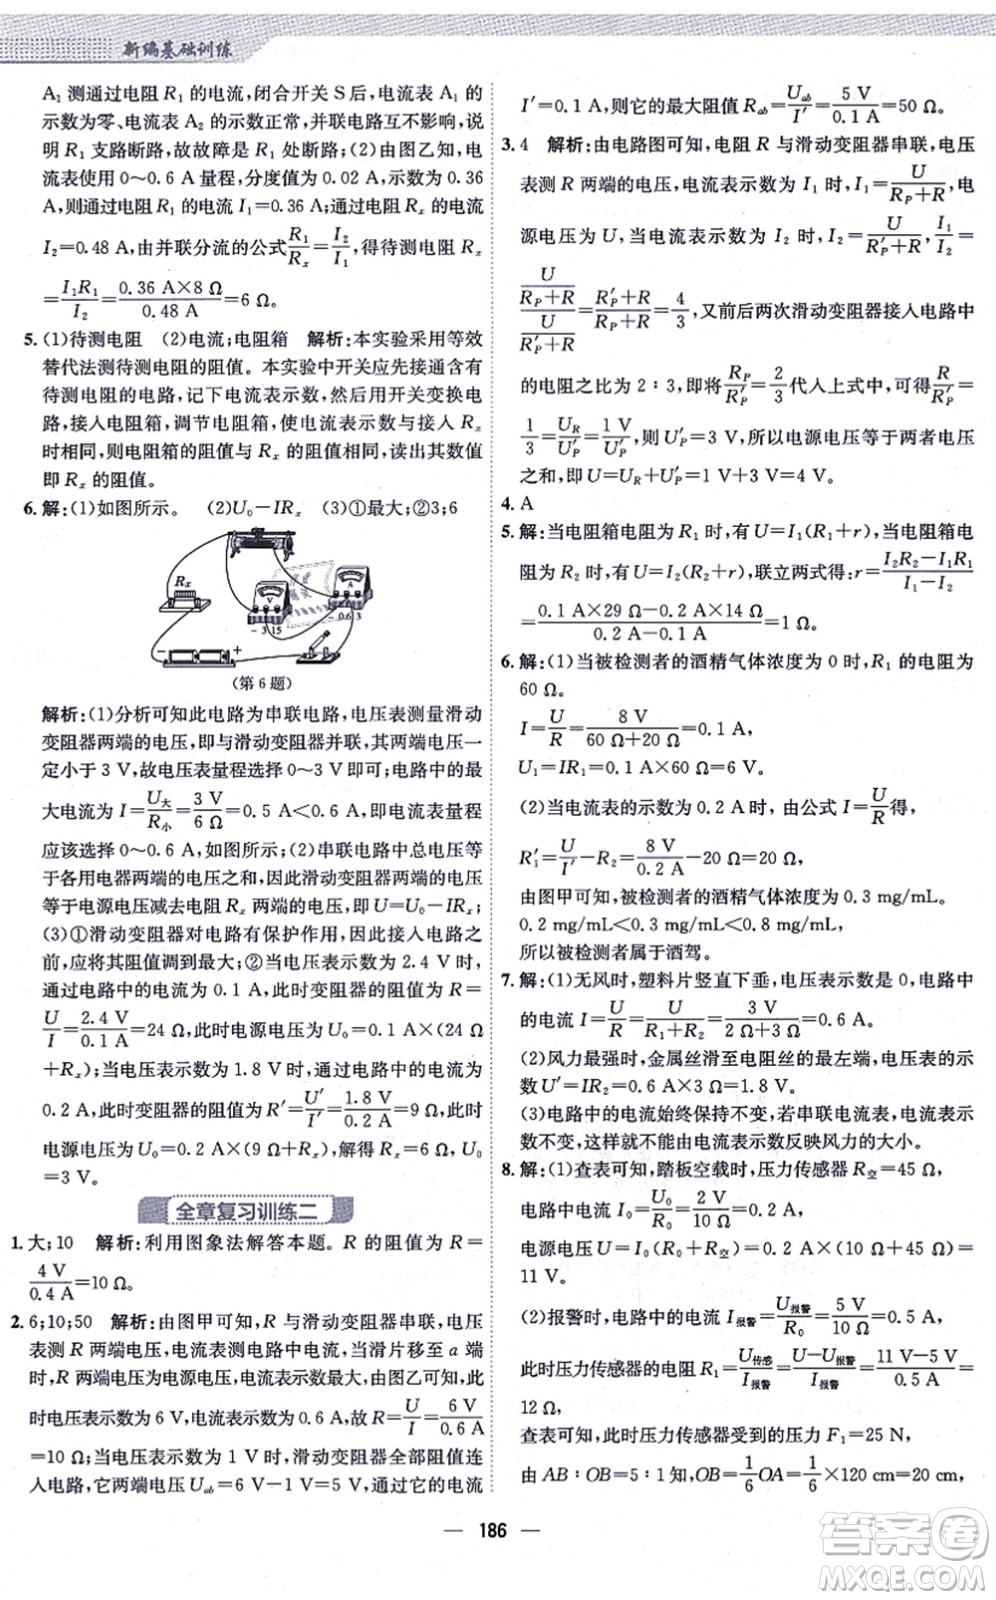 新编基础训练
A₁ 测通过电阻 R₁ 的电流,闭合开关 S 后,电流表 A₁ 的
示数为零、电流表 A₂ 的示数正常,并联电路互不影响,说
明 R₁ 支路断路,故故障是 R₁ 处断路;(2)由图乙知,电
流表使用 0～0.6 A 量程,分度值为 0.02 A,示数为 0.36
A,则通过电阻 R₁ 的电流 I₁=0.36 A;通过电阻 Rₓ 的电流
I₂=0.48 A,由并联分流的公式 R₁/Rₓ=I₂/I₁,得待测电阻 Rₓ
=I₁R₁/I₂=0.36 A×8 Ω/0.48 A=6 Ω。
5. (1)待测电阻 (2)电流;电阻箱 解析:本实验采用等效
替代法测待测电阻的阻值。本实验中开关应先接到
待测电阻处,记下电流表示数,然后用开关变换电
路,接入电阻箱,调节电阻箱,使电流表示数与接入 Rₓ
时相同,电阻箱的阻值与待测电阻相同,读出其数值
即 Rₓ 的阻值。
6. 解:(1)如图所示。 (2)U₀-IRₓ (3)①最大;②3;6
Rₓ
V
A
- 3 15
- 0.6 3
- +
(第 6 题)
解析:(1)分析可知此电路为串联电路,电压表测量滑动
变阻器两端的电压,即与滑动变阻器并联,其两端电压一
定小于 3 V,故电压表量程选择 0～3 V 即可;电路中的最
大电流为 I=U大/R小=3 V/6 Ω=0.5 A<0.6 A,故电流表量程
应该选择 0～0.6 A,如图所示;(2)串联电路中总电压等于
各用电器两端的电压之和,因此滑动变阻器两端的电压等
于电源电压减去电阻 Rₓ 两端的电压,即 U=U₀-IRₓ;
(3)①滑动变阻器对电路有保护作用,因此接入电路之
前,应将其阻值调到最大;②当电压表示数为 2.4 V 时,
通过电路中的电流为 0.1 A,此时变阻器的阻值为 R=
U/I=2.4 V/0.1 A=24 Ω,此时电源电压为 U₀=0.1 A×(24 Ω
+Rₓ);当电压表示数为 1.8 V 时,通过电路中的电流为
0.2 A,此时变阻器的阻值为 R′=U′/I′=1.8 V/0.2 A=9 Ω,此时
电源电压为 U₀=0.2 A×(9 Ω+Rₓ),解得 Rₓ=6 Ω,U₀
=3 V。
全章复习训练二
1. 大;10 解析:利用图象法解答本题。R 的阻值为 R=
4 V/0.4 A=10 Ω。
2. 6;10;50 解析:由图甲可知,R 与滑动变阻器串联,电压
表测 R 两端电压,电流表测电路中电流,当滑片移至 a 端
时,R 两端电压、电流表示数最大,由图乙可知,此
时电压表示数为 6 V,电流表示数为 0.6 A,故 R=U/I=6 V/0.6 A
=10 Ω;当电压表示数为 1 V 时,滑动变阻器全部阻值连
入电路,它两端电压为 Uab=6 V-1 V=5 V,通过它的电流
I′=0.1 A,则它的最大阻值 Rab=Uab/I′=5 V/0.1 A=50 Ω。
3. 4 解析:由电路图可知,电阻 R 与滑动变阻器串联,电压
表测 R 两端的电压,电流表示数为 I₁ 时,I₁=U/(R_P+R),电
源电压为 U,当电流表示数为 I₂ 时,I₂=U/(R′_P+R),I₁/I₂=
(U/(R_P+R))/(U/(R′_P+R))=(R′_P+R)/(R_P+R)=4/3,又前后两次滑动变阻器接入电路中
的电阻之比为 2∶3,即将 R_P/R′_P=2/3 代人上式中,可得 R/R′_P=
1/3=U_R/U′_P=1 V/U′_P,则 U′_P=3 V,所以电源电压等于两者电压
之和,即 U=U_R+U′_P=1 V+3 V=4 V。
4. A
5. 解:当电阻箱电阻为 R₁ 时,有 U=I₁(R₁+r),当电阻箱电
阻为 R₂ 时,有 U=I₂(R₂+r),联立两式得:r=(I₂R₂-I₁R₁)/(I₁-I₂)
=(0.1 A×29 Ω-0.2 A×14 Ω)/(0.2 A-0.1 A)=1 Ω。
6. 解:(1)当被检测者的酒精气体浓度为 0 时,R₁ 的电阻为
60 Ω。
I=U/R=8 V/(60 Ω+20 Ω)=0.1 A,
U₁=IR₁=0.1 A×60 Ω=6 V。
(2)当电流表的示数为 0.2 A 时,由公式 I=U/R得,
R′₁=U/I′-R₂=8 V/0.2 A-20 Ω=20 Ω,
由图甲可知,被检测者的酒精气体浓度为 0.3 mg/mL。
0.2 mg/mL<0.3 mg/mL<0.8 mg/mL,
所以被检测者属于酒驾。
7. 解:(1)无风时,塑料片竖直下垂,电压表示数是 0,电路中
的电流 I=U/R=U/(R₁+R₂)=3 V/(2 Ω+3 Ω)=0.6 A。
(2)风力最强时,金属丝滑至电阻丝的最左端,电压表的示
数 U′=IR₂=0.6 A×3 Ω=1.8 V。
(3)电路中的电流始终保持不变,若串联电流表,电流表示
数不变,这样就不能由电流表示数反映风力的大小。
8. 解:(1)查表可知,踏板空载时,压力传感器 R空=45 Ω,
电路中电流 I₀=U₀/R₀=2 V/10 Ω=0.2 A,
电源电压 U=I₀(R₀+R空)=0.2 A×(10 Ω+45 Ω)=
11 V。
(2)报警时,电路中的电流 I报警=U报警/R₀=5 V/10 Ω=0.5 A,
此时压力传感器的电阻 R₁=U传感/I报警=(U-U报警)/I报警=(11 V-5 V)/0.5 A=
12 Ω,
查表可知,此时压力传感器受到的压力 F₁=25 N,
由 AB∶OB=5∶1 知,OB=1/6 OA=1/6×120 cm=20 cm,
186
答案圈
MXQE.COM